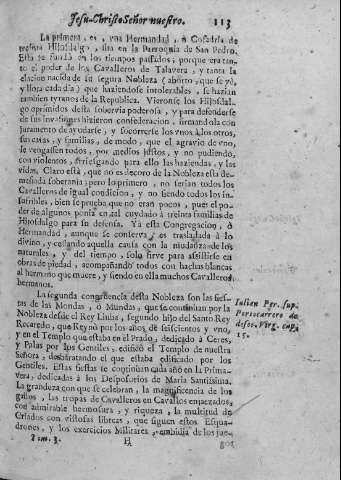 Jesu-Christo Señor nuestro. 113
La primera, es, vna Hermandad, ò Cofadria de
treinta Hijosdalgo, sita en la Parroquia de San Pedro.
Esta se fundò en los tiempos passados, porque era tan-
to el poder de los Cavalleros de Talavera, y tanta la
elacion nacida de su segura Nobleza (aborto, que se vè,
y llora cada dia) que haziendose intolerables, se hazian
tambien tyranos de la Republica. Vieronse los Hijosdal-
go oprimidos desta sobervia poderosa, y para defenderse
de sus invasiones hizieron confederacion, firmandola con
juramento de ayudarse, y socorrerse los vnos à los otros,
sus casas, y familias, de modo, que el agravio de vno,
se vengassen todos, por medios justos, y no pudiendo,
con violentos, arriesgando para ello las haziendas, y las
vidas. Claro està, que no es decoro de la Nobleza esta de-
masiada sobervia; pero lo primero, no serian todos los
Cavalleros de igual condicion, y no siendo todos los in-
sufribles, bien se prueba que no eran pocos, pues el po-
der de algunos ponia en tal cuydado à treinta familias de
Hijosdalgo para su defensa. Yà esta Congregacion, ò
Hermandad, aunque se conserva, es trasladada à lo
divino, y cessando aquella causa con la mudança de los
naturales, y del tiempo, solo sirve para assistirse en
obras de piedad, acompañando todos con hachas blancas
al hermano que muere, y siendo en ella muchos Cavalleros
hermanos.
La segunda congruencia desta Nobleza son las fies-
tas de las Mondas, ò Mundas, que se continùan por la
Nobleza desde el Rey Liuba, segundo hijo del Santo Rey
Recaredo, que Reynò por los años de seiscientos y vno,
y en el Templo que estaba en el Prado, dedicado à Ceres,
y Palas por los Gentiles, edificò el Templo de nuestra
Señora, desbaratando el que estaba edificado por los
Gentiles. Estas fiestas se continùan cada año en la Prima-
vera, dedicadas à los Desposorios de Maria Santissima.
La grandeza con que se celebran, la magnificencia de los
gastos, las tropas de Cavalleros en Cavallos enjaezados,
con admirable hermosura, y riqueza, la multitud de
Criados con vistosas libreas, que siguen estos Esqua-
drones, y los exercicios Militares, embidia de los jue-
Tom. 3. H gos
Iulian Per. sup.
Portocarrero de
desce. Virg. cap.
15.